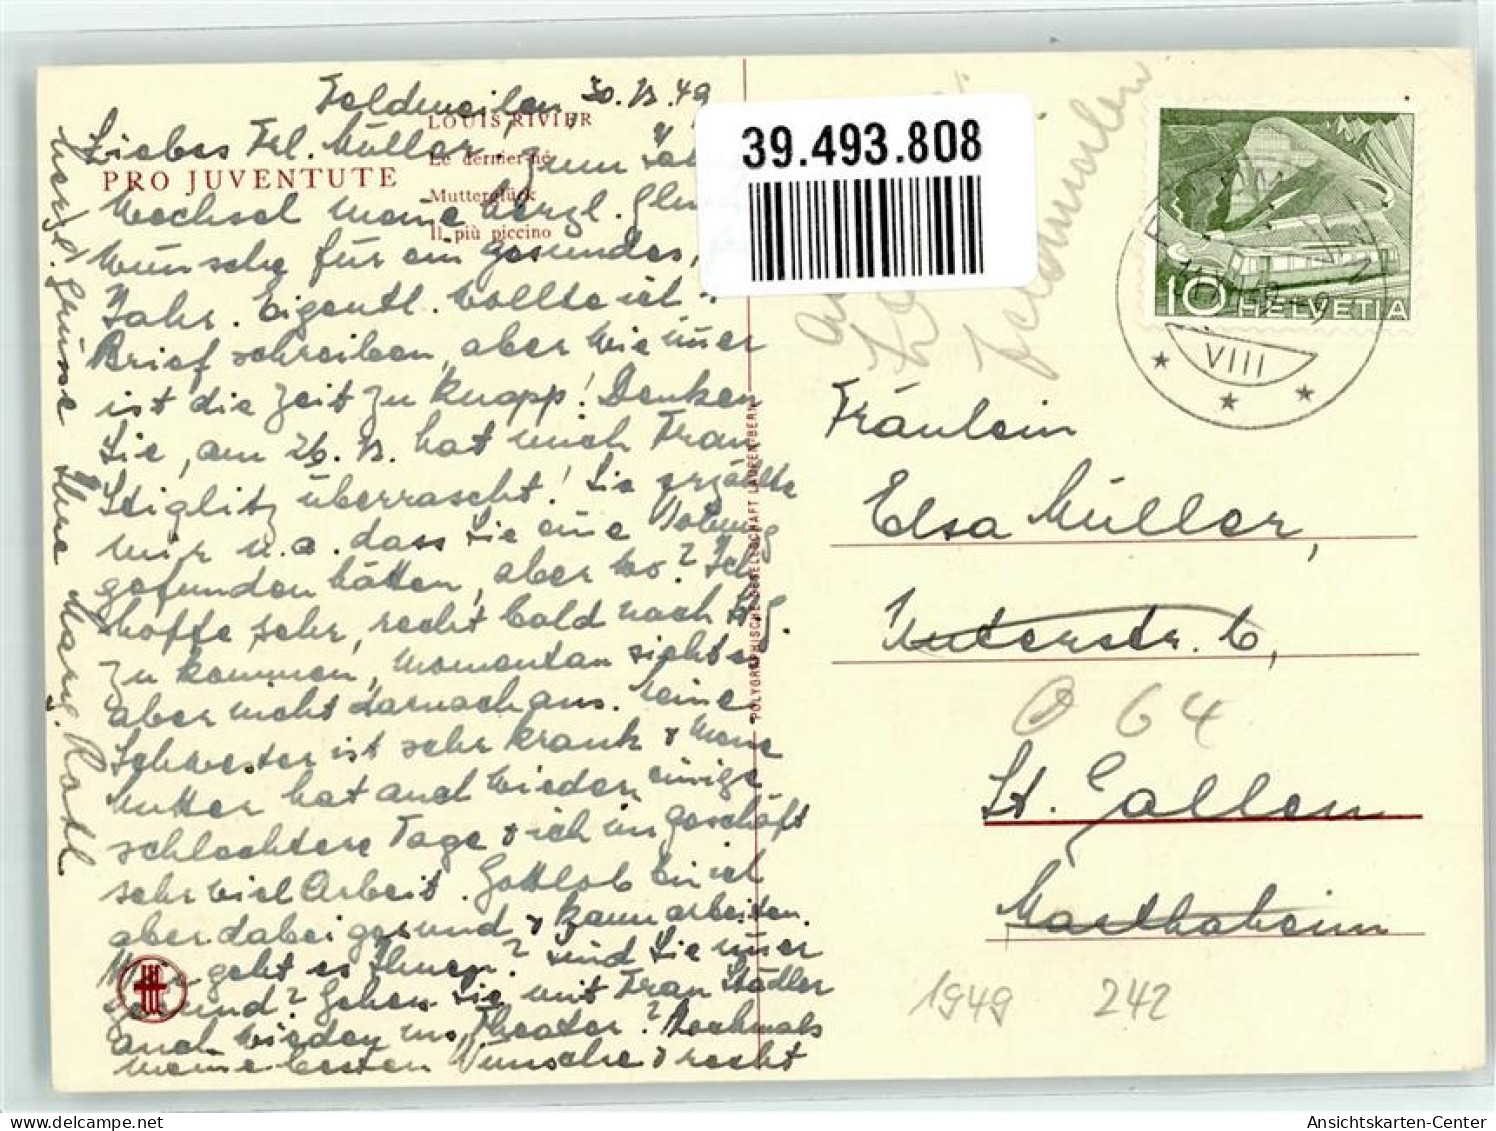 Feldmeilen, 30. 12. 49
LOUIS RIVIER
Liebes Frl. Müller, zum
Le dernier-né
PRO JUVENTUTE
Mutterglück
Wechsel meine herzl.
Il più piccino
wünsche für ein gesundes,
Jahr. Eigentl. wollte ich
Brief schreiben, aber wie immer
ist die Zeit zu knapp! Denken
Sie, am 26. 12. hat mich Frau
Stiglitz überrascht! Sie erzählte
mir u. a. dass Sie eine Wohnung
gefunden hätten, aber wo? Ich
hoffe sehr, recht bald nach St. G.
zu kommen, momentan sieht es
aber nicht darnach aus. Meine
Schwester ist sehr krank & meine
Mutter hat auch wieder einige
schlechtere Tage & ich im Geschäft
sehr viel Arbeit. Gottlob bin ich
aber dabei gesund & kann arbeiten.
Wie geht es Ihnen? Sind Sie immer
gesund? Gehen Sie mit Frau Städler
auch wieder ins Theater? Nochmals
meine besten Wünsche & recht
herzl. Grüsse Ihre Roth
POLYGRAPHISCHE GESELLSCHAFT LAUPEN-BERN
39.493.808
Feldmeilen
10 HELVETIA
VIII
Fräulein
Elsa Müller,
Unterstr. 6,
64
St. Gallen
Marthaheim
1949 242
Ansichtskarten-Center